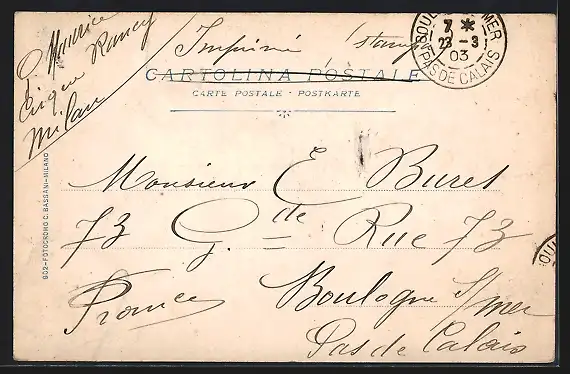 Maurice
Cirque Rancy
Milan
Imprimé stamp
CARTOLINA POSTALE
CARTE POSTALE - POSTKARTE
BOULOGNE-S-MER
7 *
23 - 3
03
PAS DE CALAIS
Monsieur E Buret
73 G.de Rue 73
Boulogne s/mer
France
Pas de Calais
902-FOTOCROMO C. BASSANI-MILANO
OUL